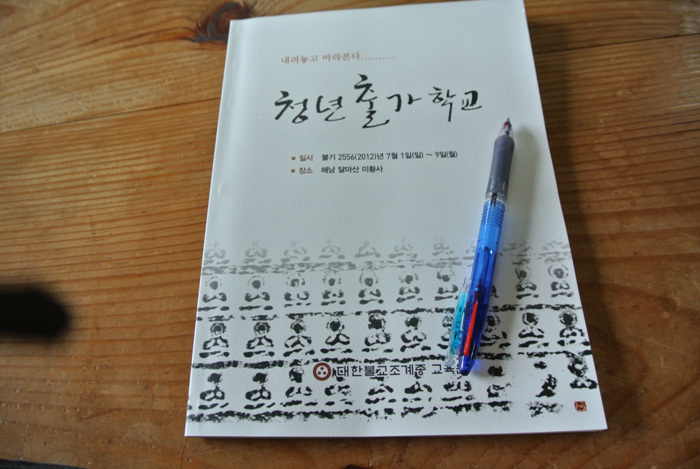 내려놓고 바라본다..........
청년출가학교
■ 일시 불기 2556(2012)년 7월 1일(일) ~ 9일(월)
■ 장소 해남 달마산 미황사
대한불교조계종